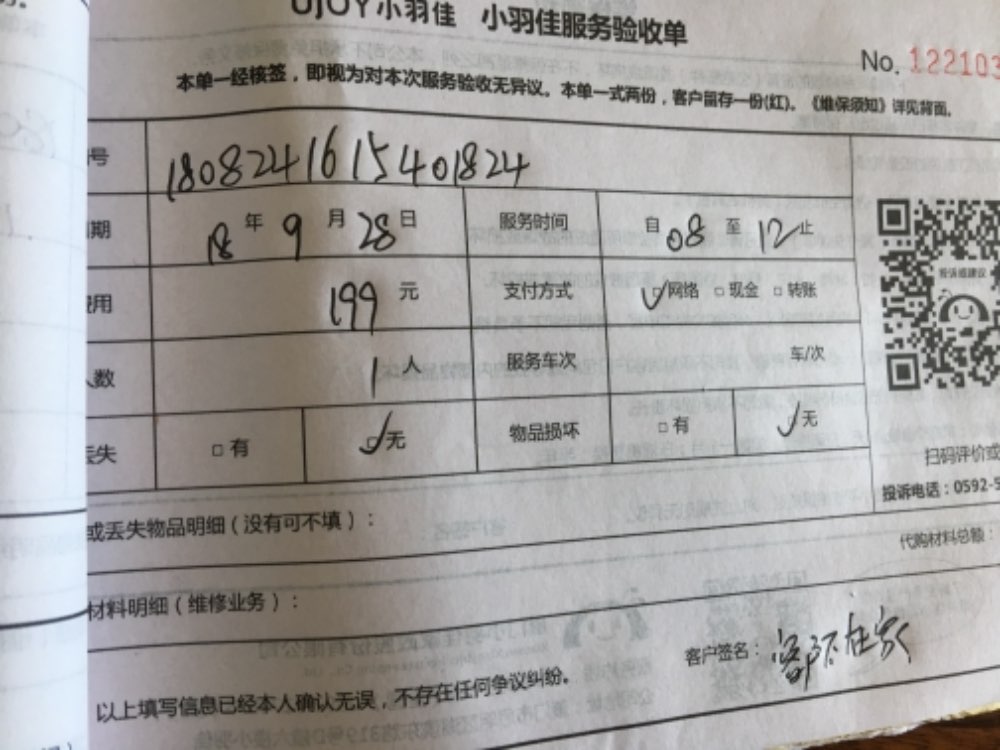 UJOY小羽佳 小羽佳服务验收单
No. 122103
本单一经核签，即视为对本次服务验收无异议。本单一式两份，客户留存一份(红)。《维保须知》详见背面。
号 1808241615401824
期 18 年 9 月 28 日 服务时间 自 08 至 12 止
费用 199 元 支付方式 ☑网络 □现金 □转账
人数 1 人 服务车次 车/次
丢失 □有 ☑无 物品损坏 □有 ☑无
投诉或建议
扫码评价或
投诉电话：0592-5
或丢失物品明细（没有可不填）：
代购材料总额：
材料明细（维修业务）：
客户签名：
以上填写信息已经本人确认无误，不存在任何争议纠纷。